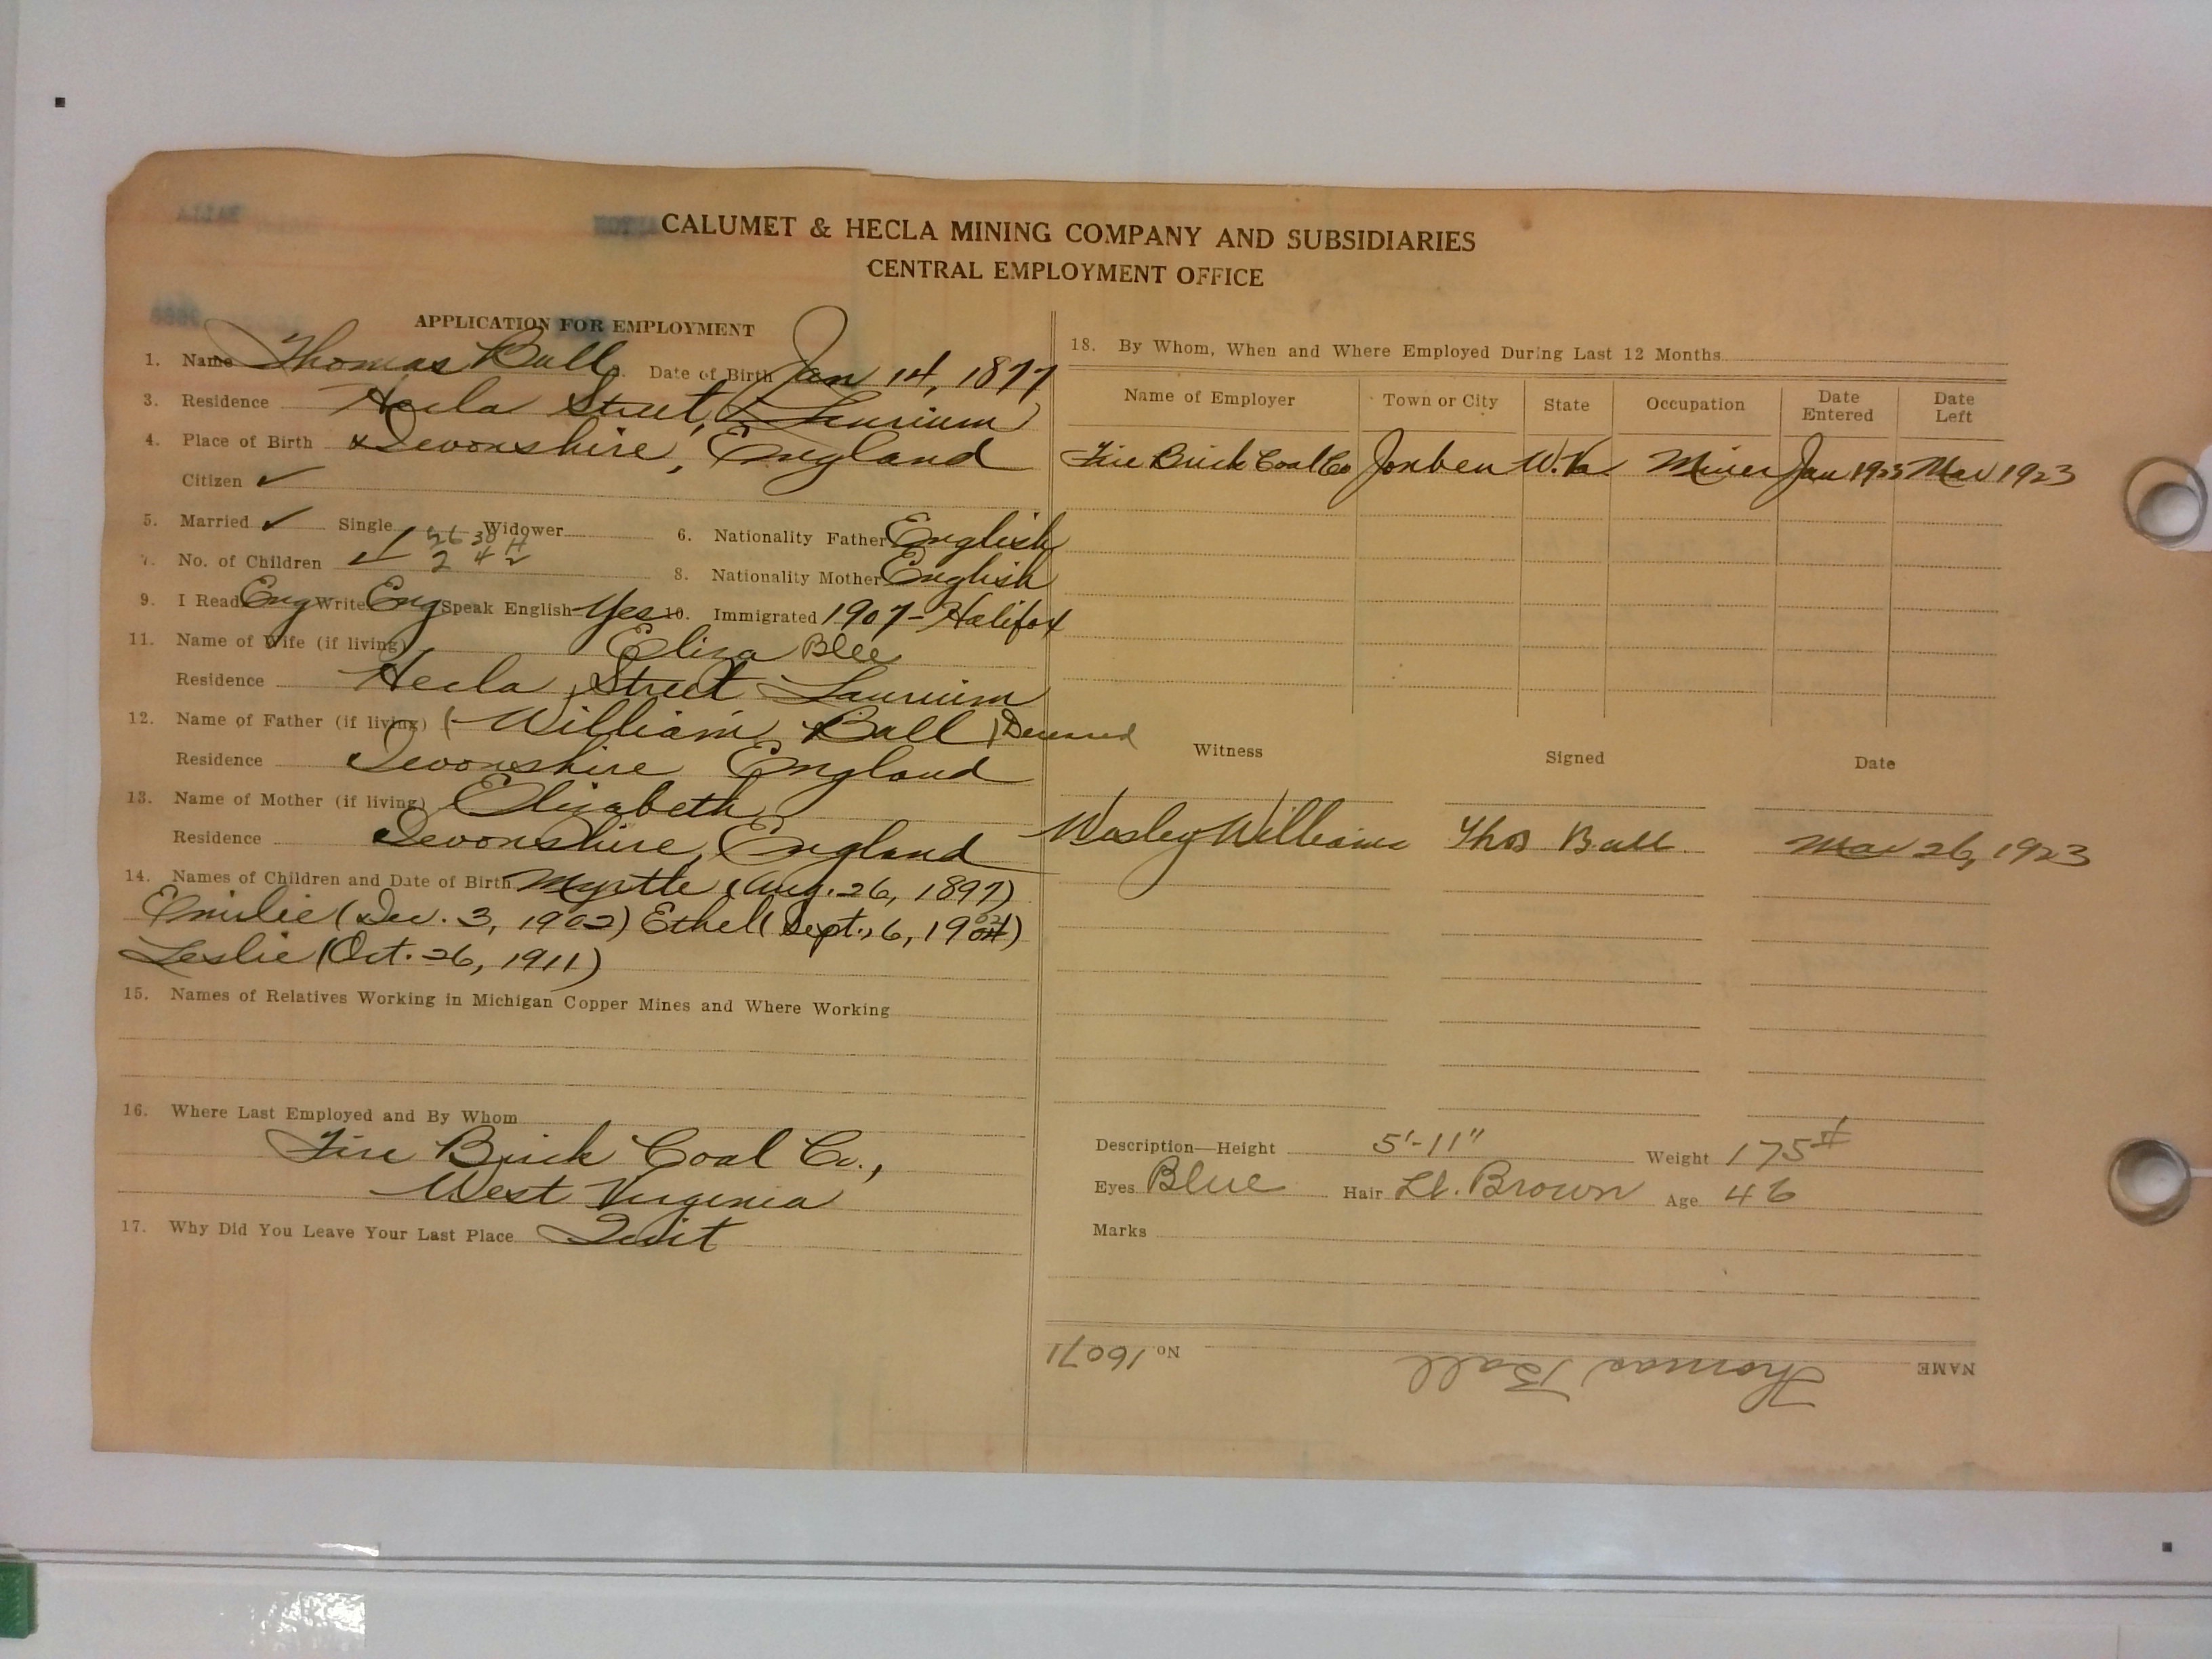 CALUMET & HECLA MINING COMPANY AND SUBSIDIARIES
CENTRAL EMPLOYMENT OFFICE
APPLICATION FOR EMPLOYMENT
1. Name Thomas Ball Date of Birth Jan 14, 1877
3. Residence Hecla Street, Laurium
4. Place of Birth Devonshire, England
Citizen ✓
5. Married ✓ Single Widower 6. Nationality Father English
7. No. of Children ✓ 2 4 2 8. Nationality Mother English
9. I Read Eng Write Eng Speak English Yes 10. Immigrated 1907 - Halifax
11. Name of Wife (if living) Eliza Blee
Residence Hecla Street Laurium
12. Name of Father (if living) (William Ball) Deceased
Residence Devonshire England
13. Name of Mother (if living) Elizabeth
Residence Devonshire, England
14. Names of Children and Date of Birth Myrtle (Aug. 26, 1897)
Emilie (Dec. 3, 1902) Ethel (Sept. 6, 1904)
Leslie (Oct. 26, 1911)
15. Names of Relatives Working in Michigan Copper Mines and Where Working
16. Where Last Employed and By Whom
Fire Brick Coal Co.,
West Virginia
17. Why Did You Leave Your Last Place Quit
18. By Whom, When and Where Employed During Last 12 Months
Name of Employer Town or City State Occupation Date Entered Date Left
Fire Brick Coal Co Jonben W. Va. Miner Jan 1923 Mar 1923
Witness Signed Date
Wesley Williams Thos Ball Mar 26, 1923
Description—Height 5'-11" Weight 175#
Eyes Blue Hair Lt. Brown Age 46
Marks
NAME Thomas Ball No. 16071